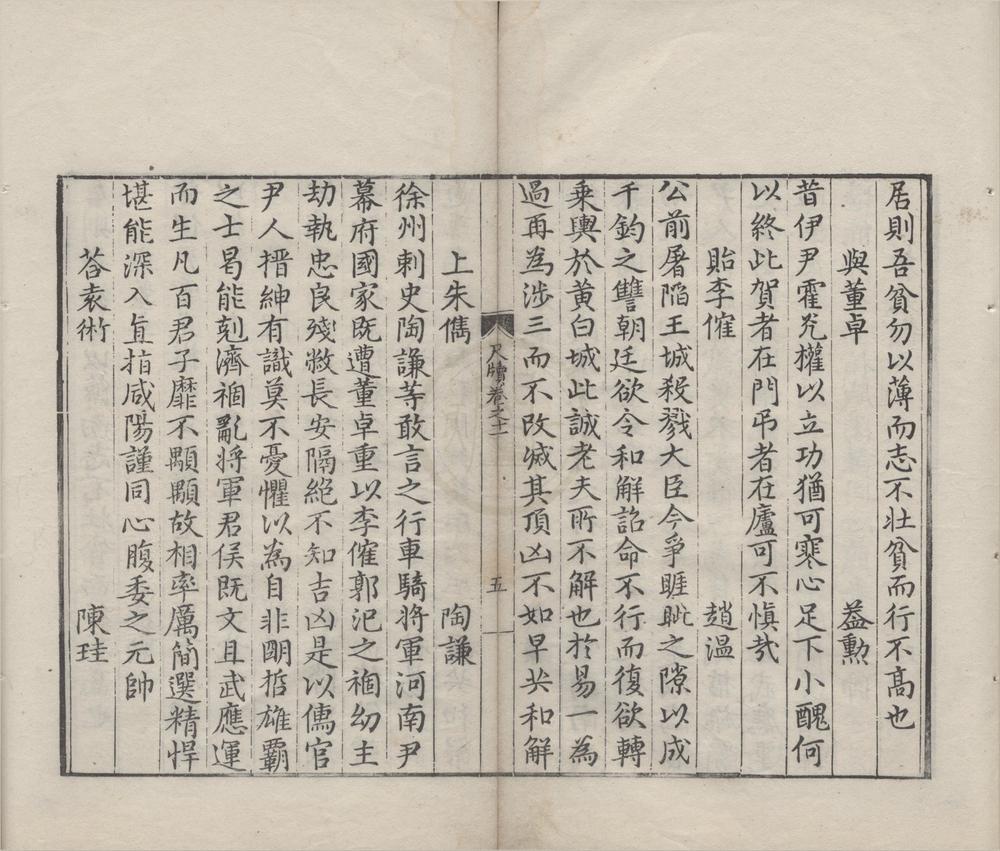 居則吾貧勿以薄而志不壯貧而行不高也
與董卓 益勳
昔伊尹霍光權以立功猶可寒心足下小醜何
以終此賀者在門弔者在廬可不慎哉
貽李傕 趙溫
公前屠陷王城殺戮大臣今爭睚眦之隙以成
千鈞之讐朝廷欲令和解詔命不行而復欲轉
乘輿於黃白城此誠老夫所不解也於易一為
過再為涉三而不改滅其頂凶不如早共和解
尺牘卷之十一 五
上朱儁 陶謙
徐州刺史陶謙等敢言之行車騎將軍河南尹
幕府國家既遭董卓重以李傕郭汜之禍幼主
劫執忠良殘敝長安隔絕不知吉凶是以儒官
尹人搢紳有識莫不憂懼以為自非明哲雄霸
之士曷能剋濟禍亂將軍君侯既文且武應運
而生凡百君子靡不顒顒故相率厲簡選精悍
堪能深入直指咸陽謹同心腹委之元帥
荅袁術 陳珪